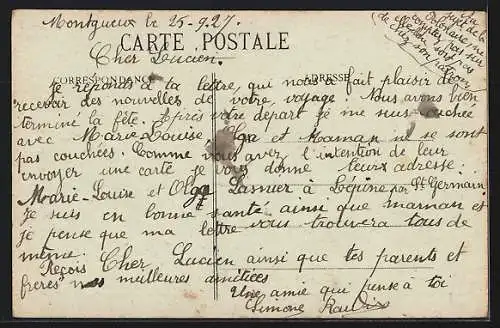 Montgueux le 25-9.27.
CARTE POSTALE
Cher Lucien.
CORRESPONDANCE
ADRESSE
Je réponds à ta lettre, qui nous a fait plaisir de
recevoir des nouvelles de votre voyage. Nous avons bien
terminé la fête. Après votre départ je me suis couchée
avec Marie-Louise Olga et Maman ne se sont
pas couchées. Comme vous avez l'intention de leur
envoyer une carte je vous donne leurs adresse.
Marie-Louise et Olga Lasnier à Lépine par St Germain.
Je suis en bonne santé ainsi que maman et
je pense que ma lettre vous trouvera tous de
même.
Reçois Cher Lucien ainsi que tes parents et
frères nos meilleures amitiées
Une amie qui pense à toi
Simone